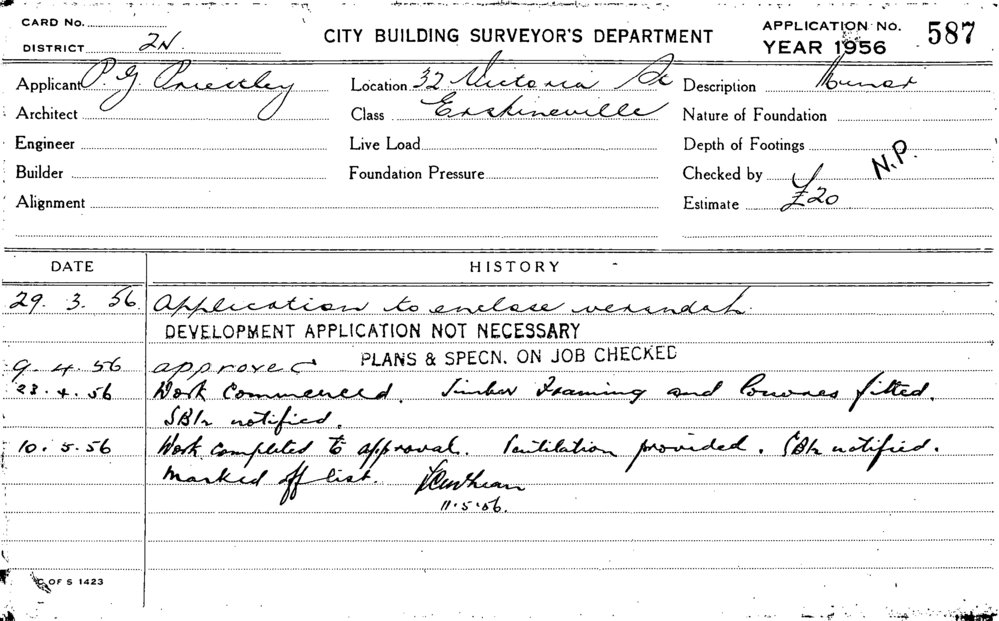 CARD No.
DISTRICT 2N.
CITY BUILDING SURVEYOR'S DEPARTMENT
APPLICATION No. 587
YEAR 1956
Applicant P. G. Priestley
Location 32 Victoria St
Description Minor
Architect
Class Erskineville
Nature of Foundation
Engineer
Live Load
Depth of Footings
Builder
Foundation Pressure
Checked by
N.P.
Alignment
Estimate £20
DATE
HISTORY
29. 3. 56 Application to enclose verandah.
DEVELOPMENT APPLICATION NOT NECESSARY
PLANS & SPECN. ON JOB CHECKED
9. 4. 56 approved
23. 4. 56 Work Commenced. Timber Framing and Louvres fitted.
notified.
10. 5. 56 Work completed to approval. Ventilation provided. notified.
Marked off list.
11.5.56.
C OF S 1423